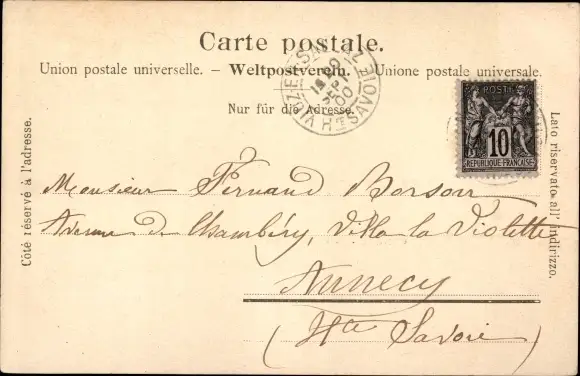 Carte postale.
Union postale universelle. – Weltpostverein. – Unione postale universale.
Nur für die Adresse.
Côté réservé à l'adresse.
Lato riservato all' indirizzo.
SEPT
00
Hte SAVOIE
POSTE
10
REPUBLIQUE FRANÇAISE
Monsieur Fernand Borson
Avenue de Chambéry, Villa la Violette
Annecy
(Hte Savoie)